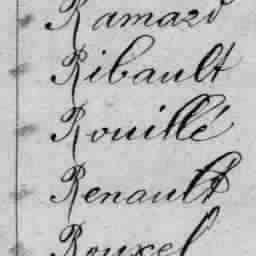 Ramard
Ribault
Rouillé
Renault
Rouxel